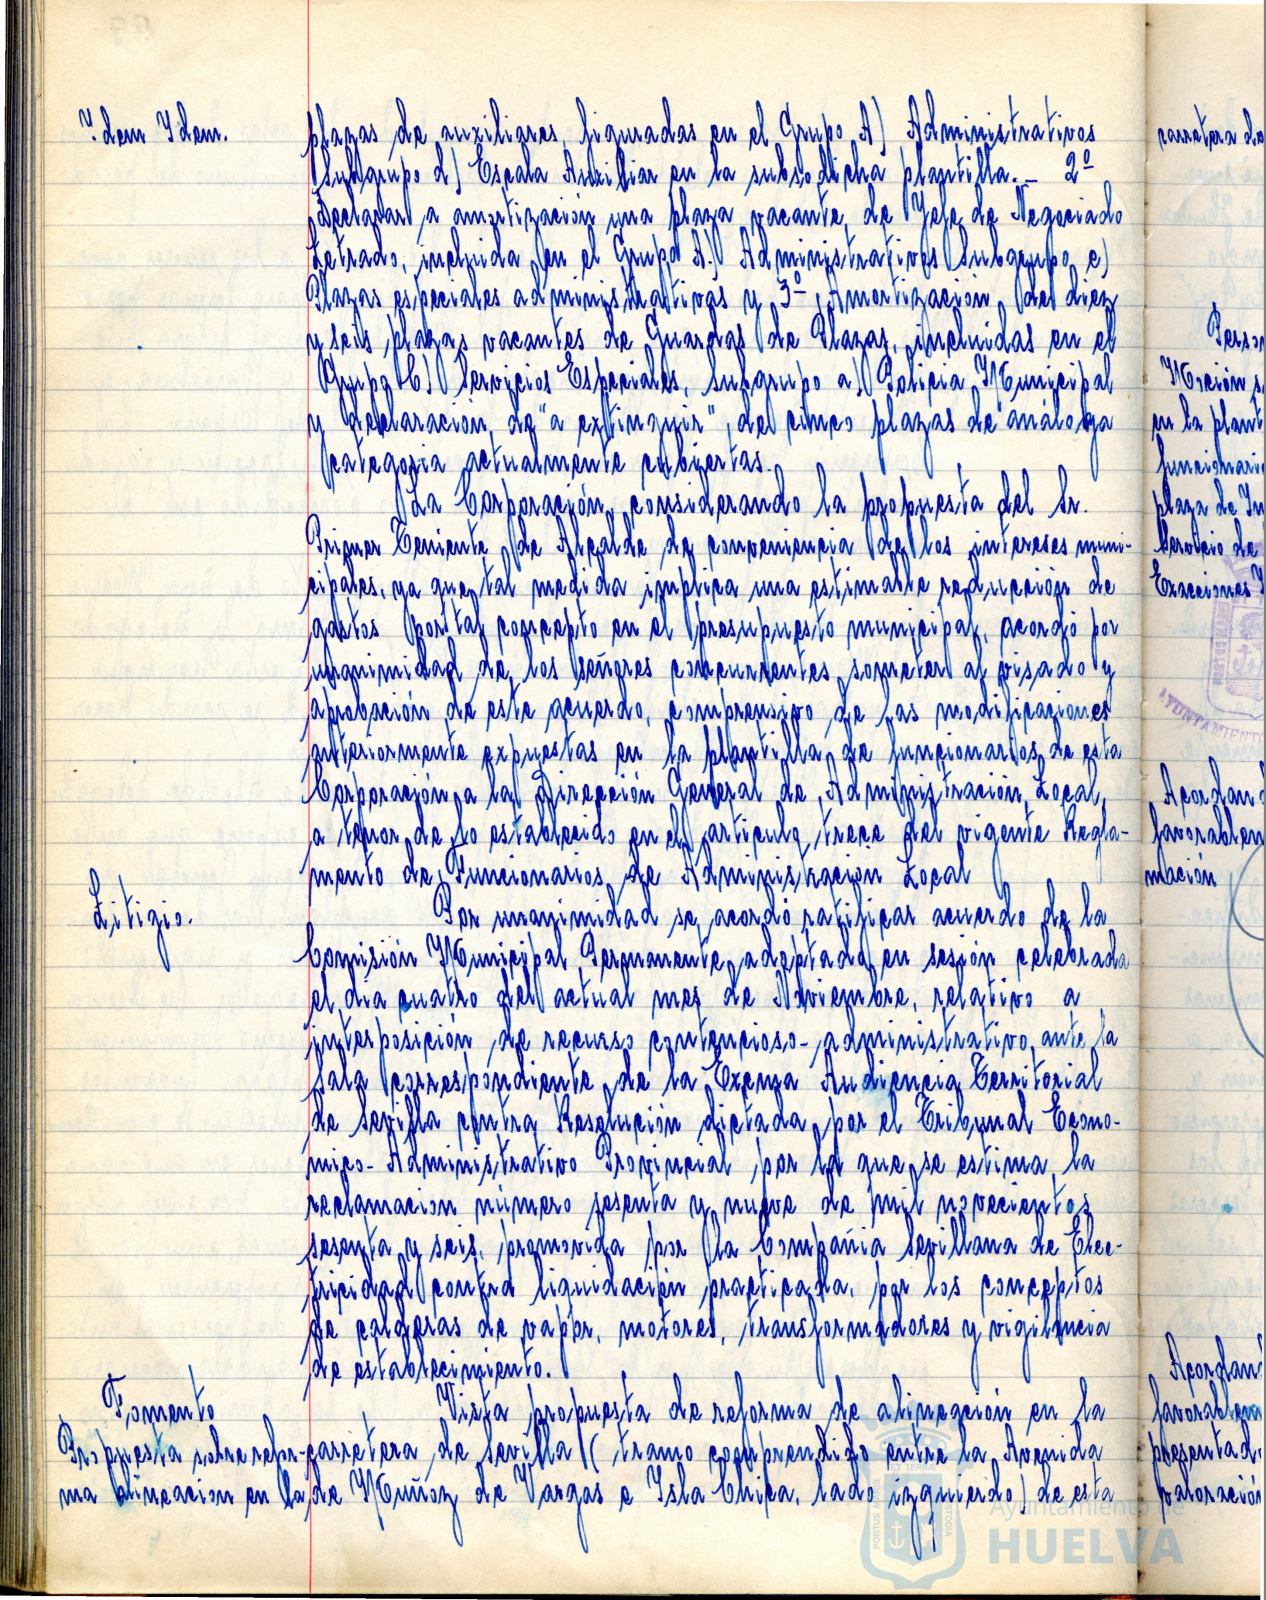 Idem Idem.
plazas de auxiliares, figuradas en el Grupo A) Administrativos
Subgrupo d) Escala Auxiliar en la susodicha plantilla.- 2º
Declarar a amortización una plaza vacante, de Jefe de Negociado
Letrado, incluida en el Grupo A) Administrativos Subgrupo e)
Plazas especiales administrativas y 3º Amortización de diez
y seis plazas vacantes de Guardas de Plazas, incluidas en el
Grupo C) Servicios Especiales, Subgrupo a) Policia Municipal
y declaración, de "a extinguir", de cinco plazas de análoga
categoria actualmente cubiertas.
La Corporación, considerando la propuesta del Sr.
Primer Teniente de Alcalde de conveniencia de los intereses muni-
cipales, ya que tal medida implica una estimable reducción de
gastos por tal concepto en el presupuesto municipal, acordó por
unanimidad de los señores concurrentes someter al visado y
aprobación de este acuerdo, comprensivo de las modificaciones
anteriormente expuestas en la plantilla de funcionarios de esta
Corporación a la Dirección General de Administración Local,
a tenor de lo establecido en el articulo trece del vigente Regla-
mento de Funcionarios de Administración Local
Litigio.
Por unanimidad se acordó ratificar acuerdo de la
Comisión Municipal Permanente, adoptado en sesión celebrada
el día cuatro del actual mes de Noviembre, relativo a
interposición de recurso contencioso-administrativo, ante la
Sala correspondiente de la Excma Audiencia Territorial
de Sevilla contra Resolución dictada por el Tribunal Econo-
mico-Administrativo Provincial por la que se estima la
reclamación número sesenta y nueve de mil novecientos
sesenta y seis, promovida por la Compañia Sevillana de Elec-
tricidad contra liquidación practicada, por los conceptos
de calderas de vapor, motores, transformadores y vigilancia
de establecimiento.
Fomento
Propuesta sobre refor-
ma alineacion en la
Vista propuesta de reforma de alineación en la
carretera de Sevilla (tramo comprendido entre la Avenida
de Muñoz de Vargas e Isla Chica, lado izquierdo) de esta
carretera de
Moción s
en la plant
funcionari
plaza de In
Servicio de
Exacciones
AYUNTAMIENTO
favorablem
mación
favorablem
presentad
valoración
Ayuntamiento de
HUELVA